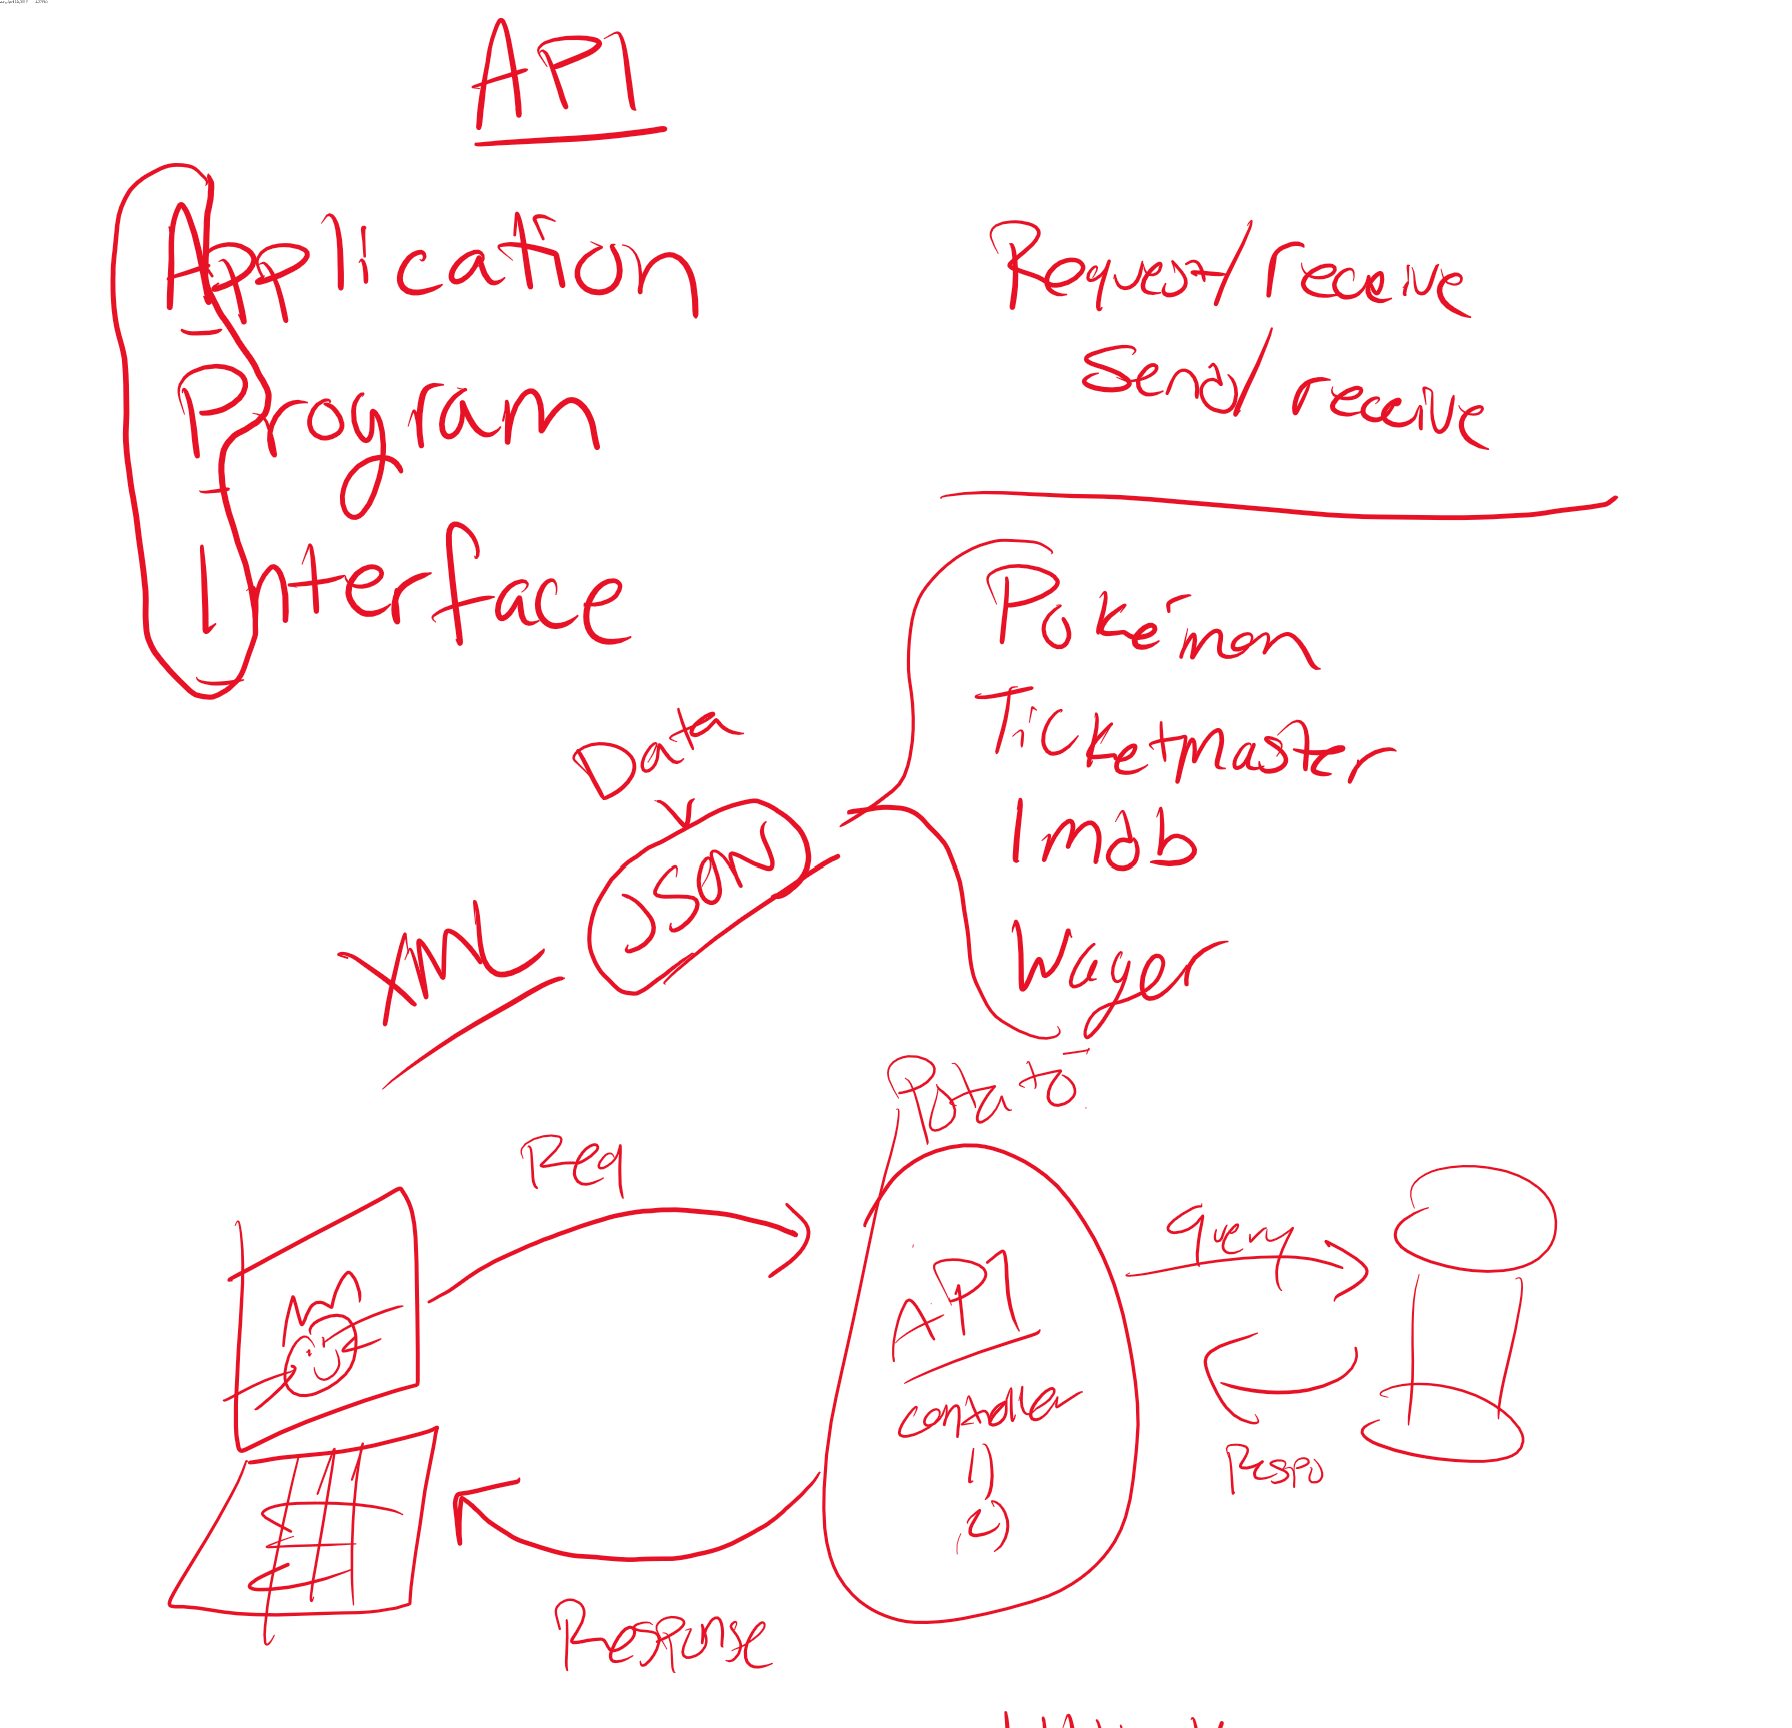 API
Application
Program
Interface
Request/receive
Send/receive
Data
JSON
XML
Pokémon
Ticketmaster
Imdb
Wager
Potato
Req
API
controller
1)
2)
Query
Respo
Response